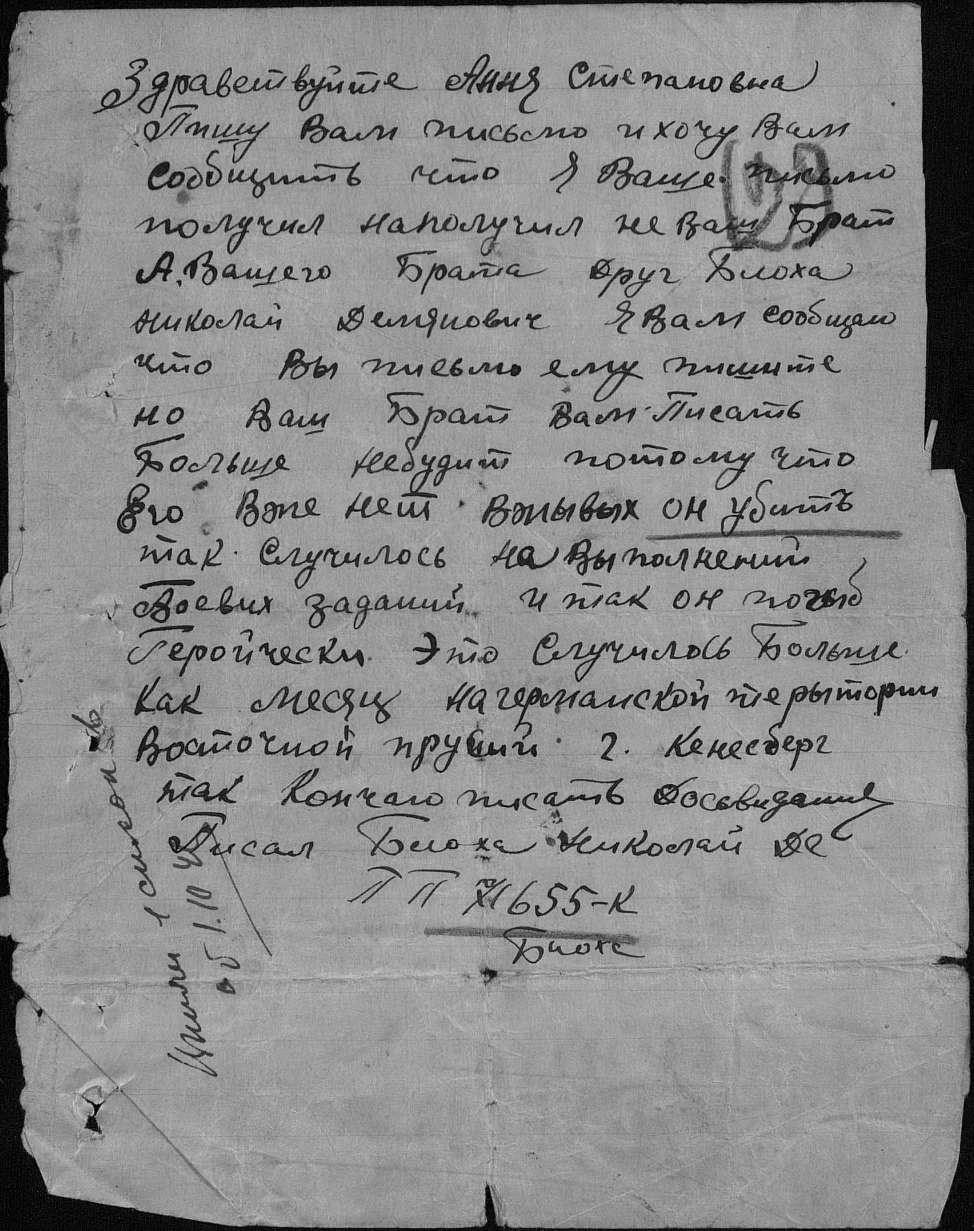 Здравствуйте Анна Степановна
Пишу Вам письмо и хочу Вам
сообщить что я Ваше письмо
получил наполучил не Ваш Брат
А. Вашего Брата друг Блоха
николай Демянович я Вам сообщаю
что Вы письмо ему пишите
но Ваш Брат Вам Писать
Больше небудит потому что
Его Вже нет Вжывых он убить
так случилось на Выполнений
Боевих заданий и так он погиб
Геройчески Это Случилось Больше
Как месяц нагерманской терытории
Восточной прусий г. Кенесберг
так Кончаю писать Досьвидания
Писал Блоха Николай Де
П П 655-К
Блоха
список
об 1.10